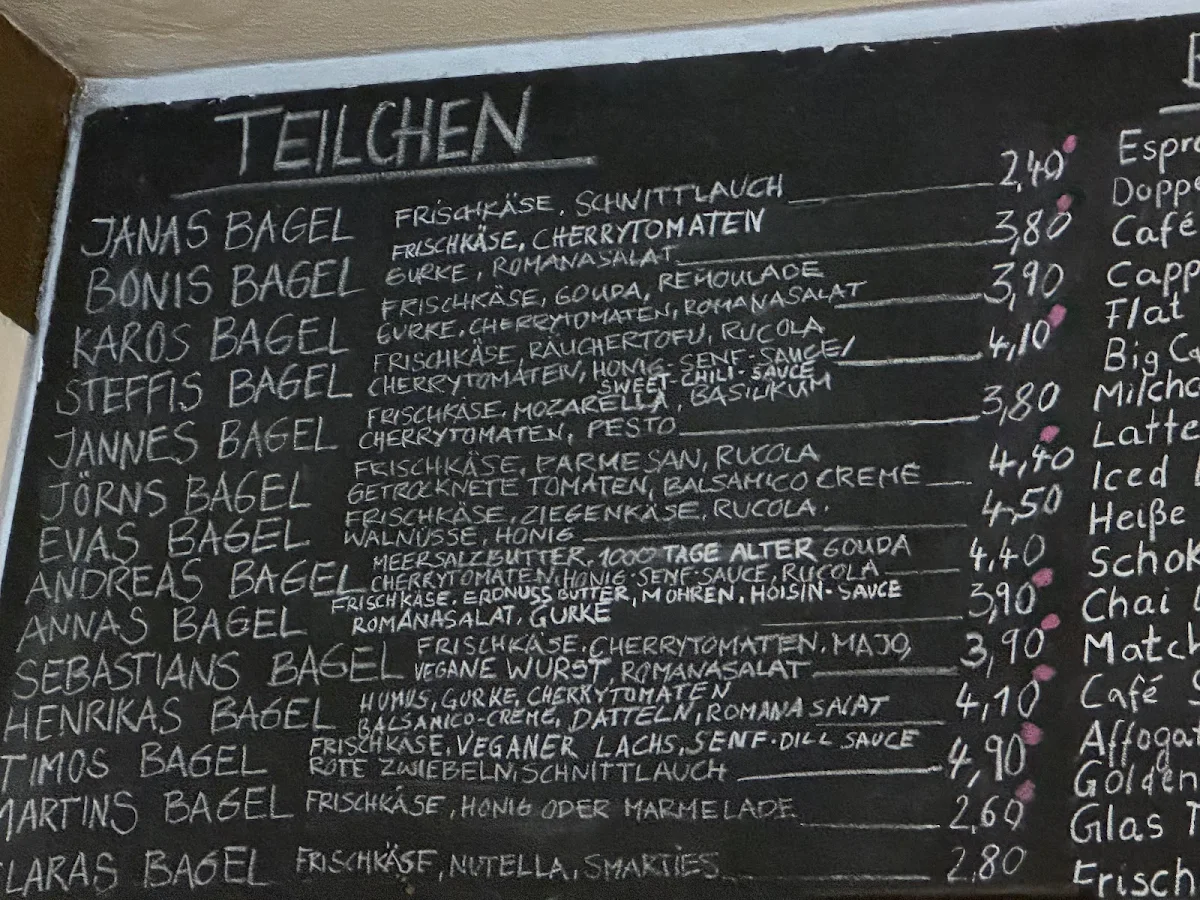 TEILCHEN
JANAS BAGEL FRISCHKÄSE, SCHNITTLAUCH 2,40
BONIS BAGEL FRISCHKÄSE, CHERRYTOMATEN
GURKE, ROMANASALAT 3,80
KAROS BAGEL FRISCHKÄSE, GOUDA, REMOULADE
GURKE, CHERRYTOMATEN, ROMANASALAT 3,90
STEFFIS BAGEL FRISCHKÄSE, RÄUCHERTOFU, RUCOLA
CHERRYTOMATEN, HONIG-SENF-SAUCE/ 4,10
SWEET-CHILI-SAUCE
JANNES BAGEL FRISCHKÄSE, MOZARELLA, BASILIKUM
CHERRYTOMATEN, PESTO 3,80
JÖRNS BAGEL FRISCHKÄSE, PARMESAN, RUCOLA
GETROCKNETE TOMATEN, BALSAMICO CREME 4,40
EVAS BAGEL FRISCHKÄSE, ZIEGENKÄSE, RUCOLA,
WALNÜSSE, HONIG 4,50
ANDREAS BAGEL MEERSALZBUTTER, 1000 TAGE ALTER GOUDA
CHERRYTOMATEN, HONIG-SENF-SAUCE, RUCOLA 4,40
ANNAS BAGEL FRISCHKÄSE, ERDNUSSBUTTER, MÖHREN, HOISIN-SAUCE
ROMANASALAT, GURKE 3,90
SEBASTIANS BAGEL FRISCHKÄSE, CHERRYTOMATEN, MAJO,
VEGANE WURST, ROMANASALAT 3,90
HENRIKAS BAGEL HUMUS, GURKE, CHERRYTOMATEN
BALSAMICO-CREME, DATTELN, ROMANASALAT 4,10
TIMOS BAGEL FRISCHKÄSE, VEGANER LACHS, SENF-DILL SAUCE
ROTE ZWIEBELN, SCHNITTLAUCH 4,90
MARTINS BAGEL FRISCHKÄSE, HONIG ODER MARMELADE 2,60
LARAS BAGEL FRISCHKÄSE, NUTELLA, SMARTIES 2,80
Espr
Dopp
Café
Capp
Flat
Big Ca
Milch
Latte
Iced
Heiße
Schok
Chai
Match
Café S
Affogat
Golden
Glas T
Frisch